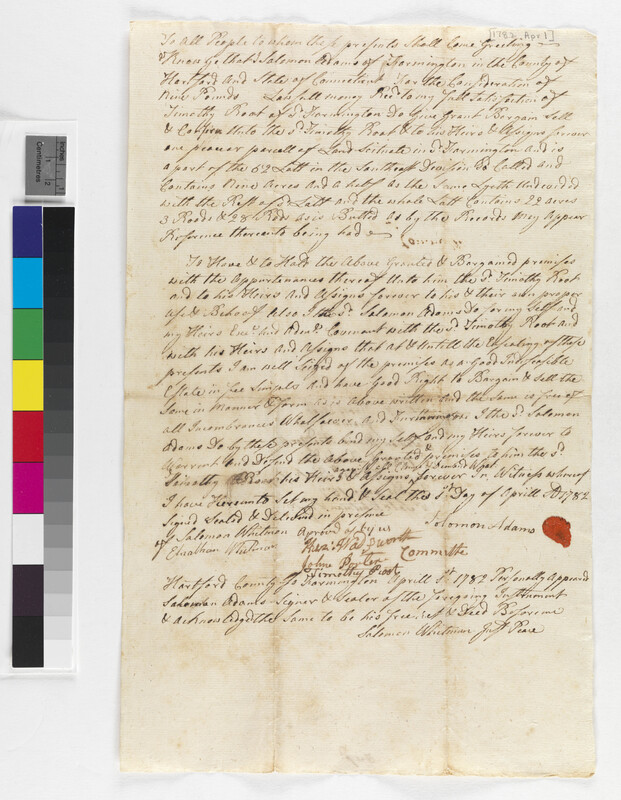 [1782 Apr 1]
To All People to whom these presents Shall Come Greeting
Know Ye that I Solomon Adams of Farmington in the County of
Hartford And State of Connecticut For the Consideration of
Nine Pounds Lawfull money Recd to my full Satisfaction of
Timothy Root of Sd Farmington Do Give Grant Bargain Sell
& Confirm Unto the Sd Timothy Root & to his Heirs & Assigns forever
one peice or parcell of Land Scituate in Sd Farmington and is
a part of the 62 Lott in the Southeast Division So Called and
Contains Nine Acres and a half as the Same Lyeth Undevided
with the Rest of Sd Lott and the whole Lott Contains 22 acres
3 Roods & 28 Rods as is Butted as by the Records May Appear
Reference thereunto being had
To Have & to Hold the Above Granted & Bargained premises
with the Appurtenances thereof Unto him the Sd Timothy Root
and to his Heirs And Assigns forever to his & their own proper
Use & Behoof Also I the Sd Solomon Adams Do for my Self and
my Heirs Exec And Admrs Covenant with the Sd Timothy Root and
with his Heirs and Assigns that at & Untill the Ensealing of these
presents I am well Seized of the premises as a Good Indefeasible
Estate in fee Simple and have Good Right to Bargain & Sell the
Same in Manner & form as is Above written and the Same is free of
all Incumbrances Whatsoever and Furthermore I the Sd Solomon
Adams Do by these presents bind my Self and my Heirs forever to
Warrent and Defend the Above Granted & premises to him the Sd
Timothy Root his Heirs & Assigns forever In Witness whereof
against all Claims & Demands What
I have Hereunto Set my hand & Seal this 1st Day of Aprill AD 1782
Signd Seald & Deliverd in presence
of Solomon Whitman
Elnathan Whitman
Aproved of by us
Solomon Adams
Hez: Wadsworth
John Porter
Timothy Root
Committe
Hartford County Ss Farmington Aprill 1st 1782 Personally Appeared
Solomon Adams Signer & Sealer of the foregoing Instrument
& Acknowledged the Same to be his free Act & Deed Before me
Solomon Whitman Just Peace
Centimetres
Inches